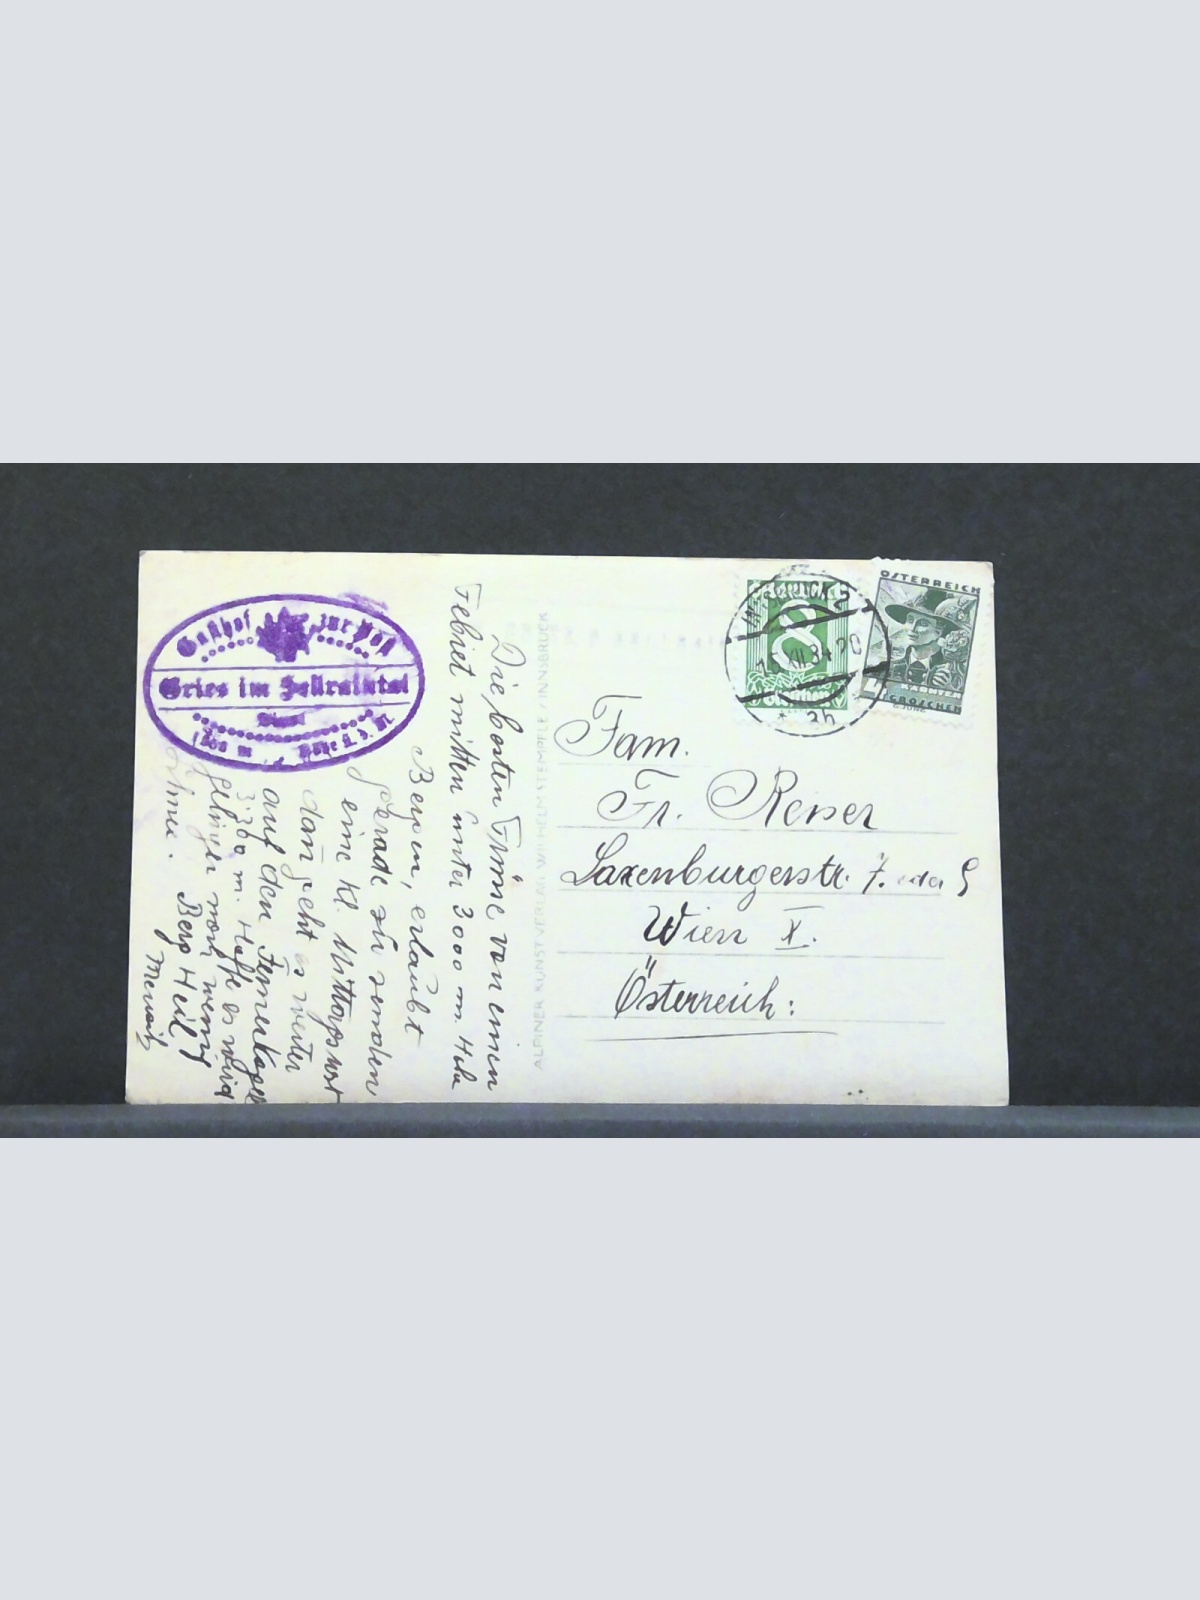 Gasthof zur Post
Gries im Sellraintal
Tirol
Höhe ü. d. M.
Die besten Grüße von einen
Gebiet mitten unter 3000 m. Hohe
Bergen, erlaubt
gerade zu senden
eine kl. Mittagsrast
dan̄ geht es weiter
auf den Fernerkogel
m. Hoffe es wird
gelingen
Berg Heil
ALPINER KUNSTVERLAG WILHELM STEMPFLE / INNSBRUCK
INNSBRUCK 2
15.XII.34 20
2h
8
Groschen
ÖSTERREICH
KÄRNTEN
GROSCHEN
Fam.
Fr. Reiser
Laxenburgerstr. 7. oder 9
Wien X.
Österreich: